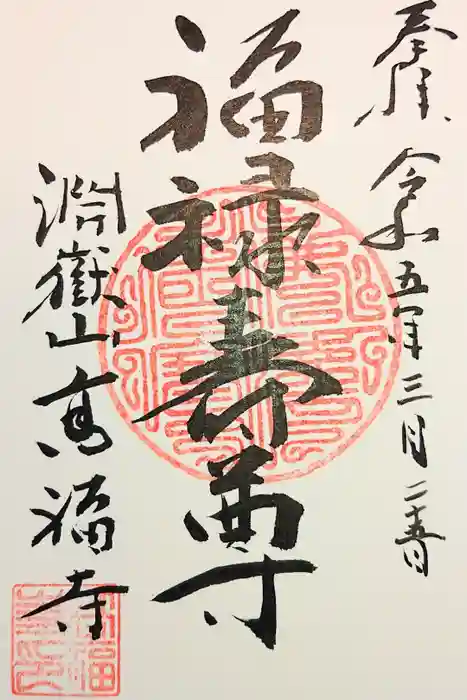 奉拝 令和五年三月二十五日
福禄寿尊
澗嶽山高福寺